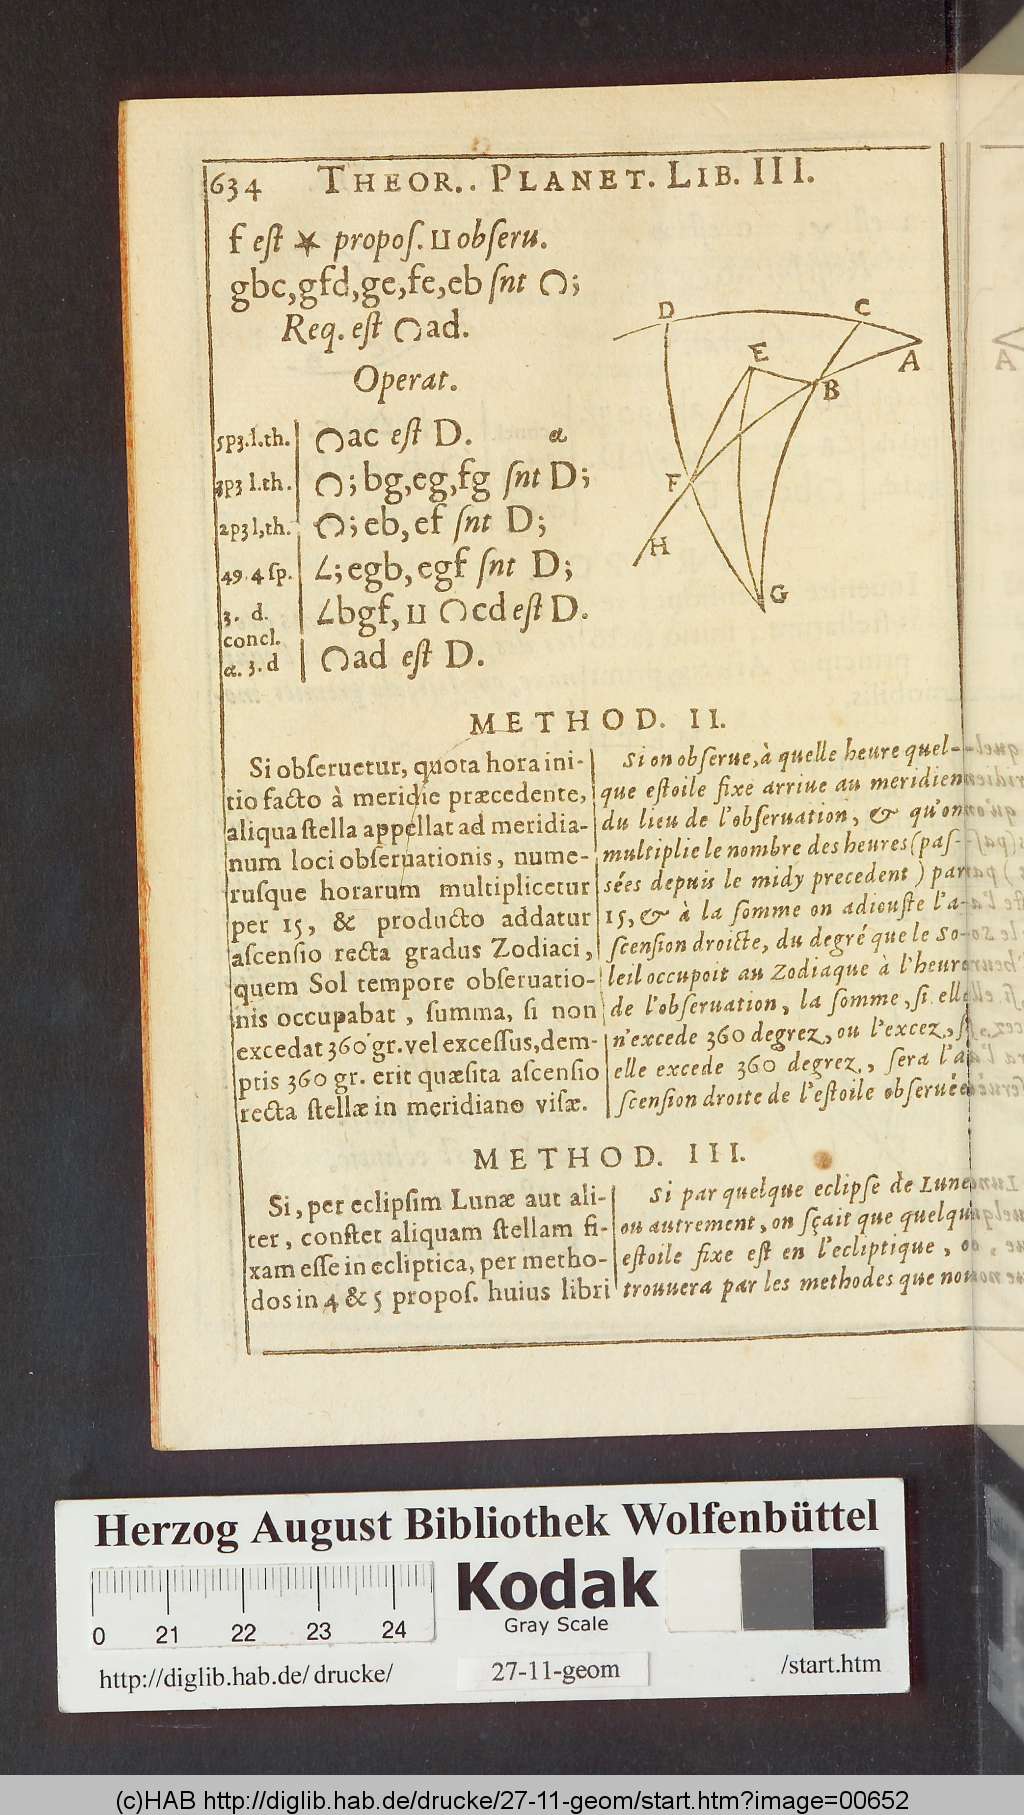 634 THEOR.. PLANET. LIB. III.
f est ★ propos. ⊔ obseru.
gbc,gfd,ge,fe,eb snt ◠;
Req. est ◠ad.
Operat.
5p3.l.th. ◠ac est D. α
3p3 l.th. ◠; bg,eg,fg snt D;
2p3l,th. ◠; eb, ef snt D;
49.4 sp. ∠; egb, egf snt D;
3. d. ∠bgf, ⊔ ◠cd est D.
concl.
α. 3. d ◠ad est D.
D
C
E
A
B
F
H
G
METHOD. II.
Si obseruetur, quota hora ini-
tio facto à meridie præcedente,
aliqua stella appellat ad meridia-
num loci obseruationis, nume-
rusque horarum multiplicetur
per 15, & producto addatur
ascensio recta gradus Zodiaci,
quem Sol tempore obseruatio-
nis occupabat, summa, si non
excedat 360 gr. vel excessus, dem-
ptis 360 gr. erit quæsita ascensio
recta stellæ in meridiano visæ.
Si on obserue, à quelle heure quel-
que estoile fixe arriue au meridien
du lieu de l'obseruation, & qu'on
multiplie le nombre des heures (pas-
sées depuis le midy precedent) par
15, & à la somme on adiouste l'a-
scension droicte, du degré que le So-
leil occupoit au Zodiaque à l'heure
de l'obseruation, la somme, si elle
n'excede 360 degrez, ou l'excez, si
elle excede 360 degrez, sera l'a
scension droite de l'estoile obseruée
METHOD. III.
Si, per eclipsim Lunæ aut ali-
ter, constet aliquam stellam fi-
xam esse in ecliptica, per metho-
dos in 4 & 5 propos. huius libri
Si par quelque eclipse de Lune
ou autrement, on sçait que quelqu
estoile fixe est en l'ecliptique, on
trouuera par les methodes que nou
A
Herzog August Bibliothek Wolfenbüttel
Kodak
Gray Scale
0 21 22 23 24
http://diglib.hab.de/drucke/ 27-11-geom /start.htm
(c)HAB http://diglib.hab.de/drucke/27-11-geom/start.htm?image=00652